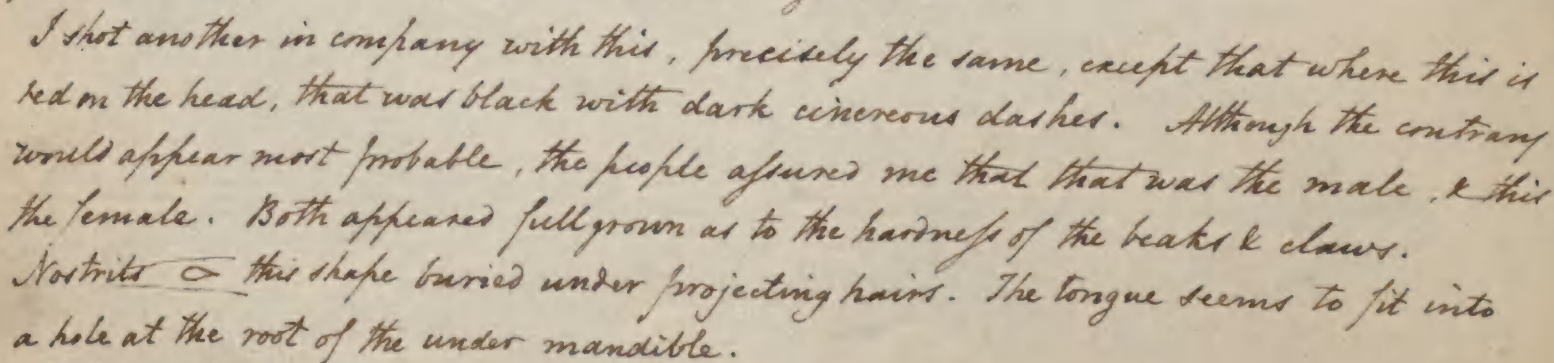 I shot another in company with this, precisely the same, except that where this is
red on the head, that was black with dark cinereous dashes. Although the contrary
would appear most probable, the people aſsured me that that was the male, & this
the female. Both appeared full grown as to the hardneſs of the beaks & claws.
Nostrils this shape buried under projecting hairs. The tongue seems to fit into
a hole at the root of the under mandible.